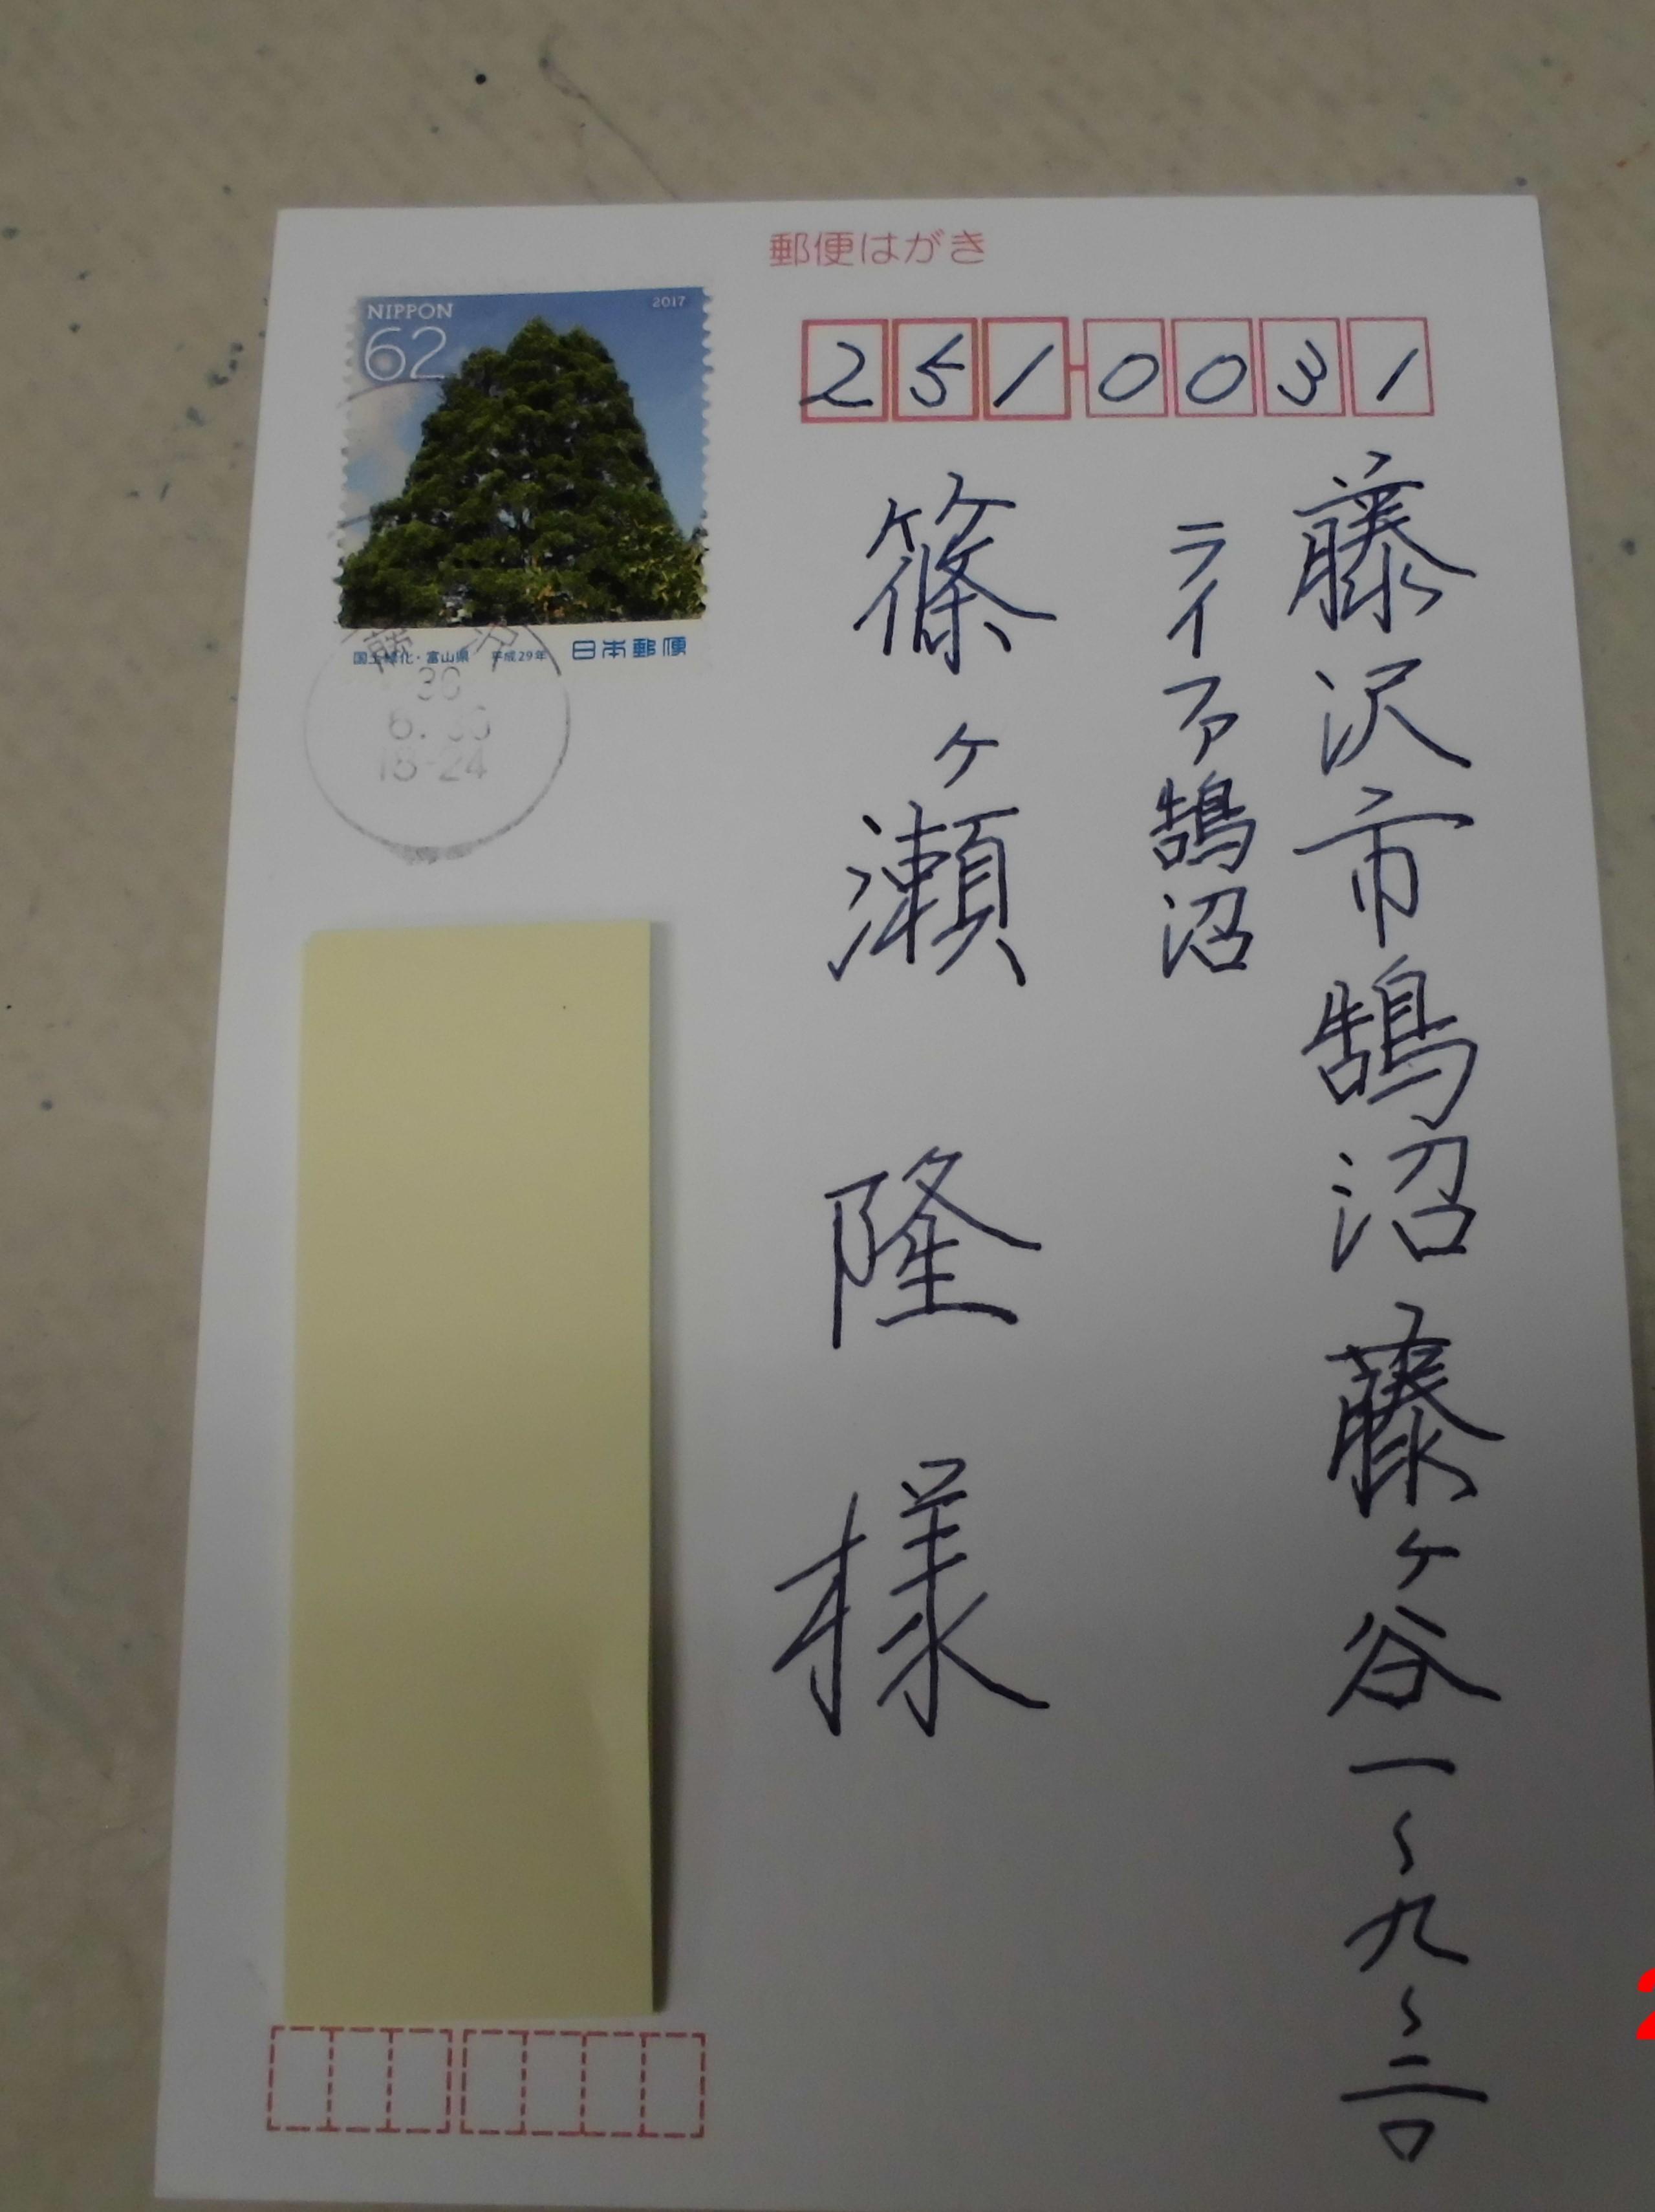 郵便はがき
NIPPON 2017
62
国土緑化・富山県 平成29年 日本郵便
藤沢
30
6.30
18-24
251-0031
藤沢市鵠沼藤ヶ谷一〜九〜二〇
ライファ鵠沼
篠ヶ瀬 隆 様